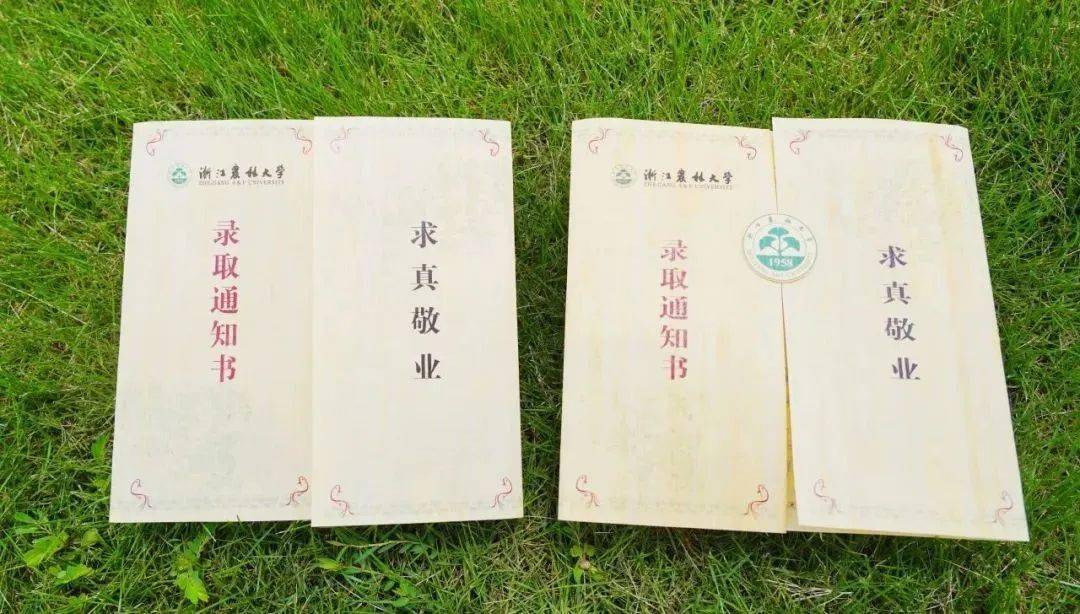 浙江農林大学
ZHEJIANG A&F UNIVERSITY
录取通知书
求真敬业
浙江農林大学
ZHEJIANG A&F UNIVERSITY
录取通知书
1958
求真敬业